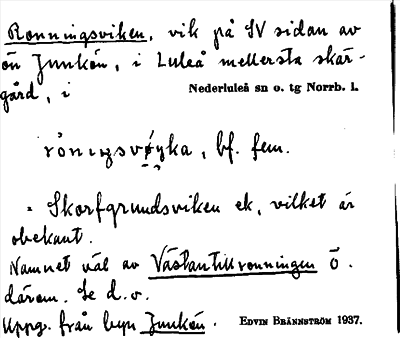 Ronningsviken, vik på SV sidan av
ön Junkön, i Luleå mellersta skär-
gård, i Nederluleå sn o. tg Norrb. l.
rȯnıŋsvø̨yka, bf. fem.
= Skorfgrundsviken ek, vilket är
obekant.
Namnet väl av Västantillronningen Ö.
därom. Se d. o.
Uppg. från byn Junkön. EDVIN BRÄNNSTRÖM 1937.